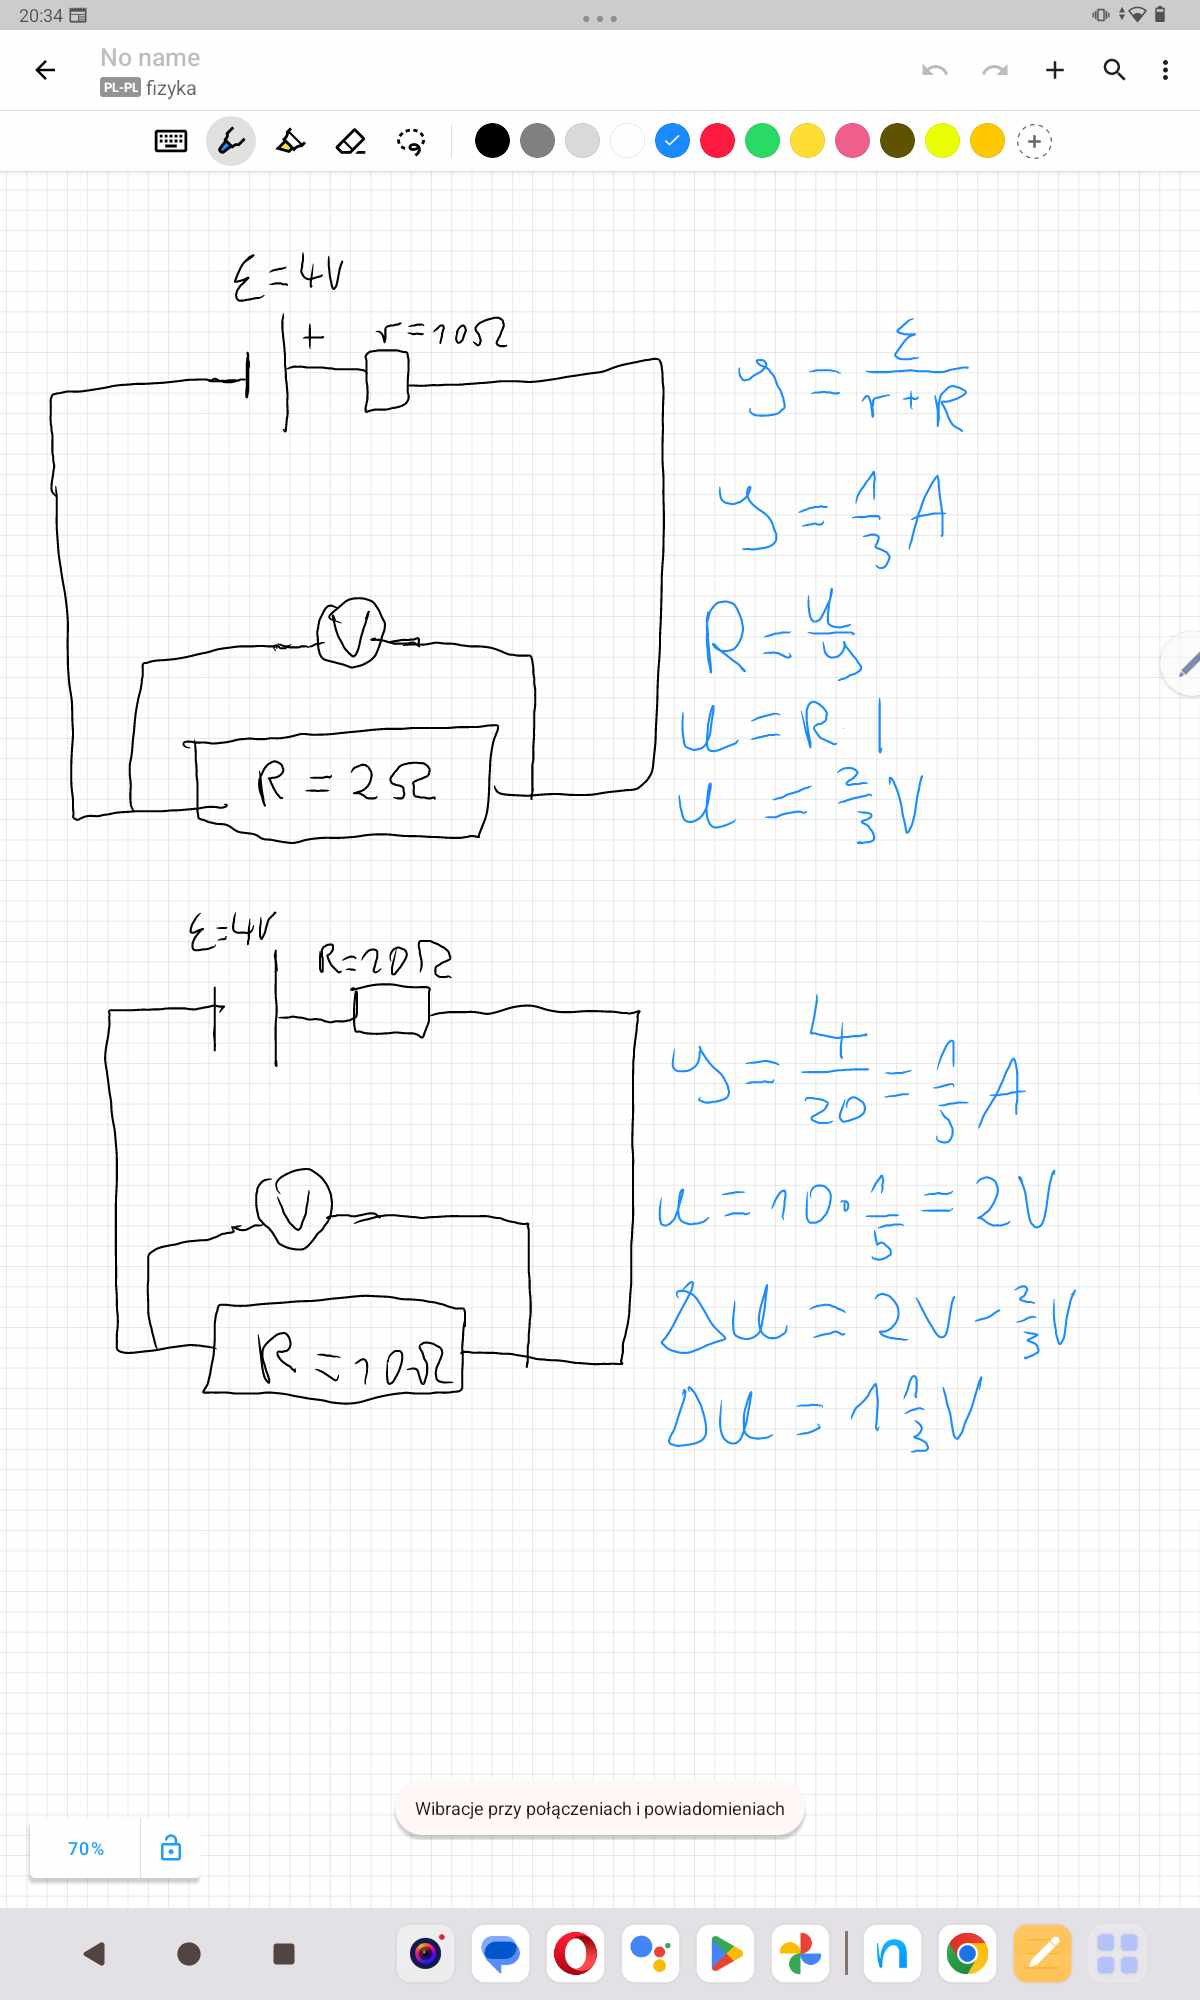 20:34
No name
PL-PL fizyka
ε = 4V
+ r = 10Ω
V
R = 2Ω
y = ε / (r + R)
y = 1/3 A
R = u/y
u = R · I
u = 2/3 V
ε = 4V
R = 10Ω
V
R = 10Ω
y = 4/20 = 1/5 A
u = 10 · 1/5 = 2V
Δu = 2V - 2/3 V
Δu = 1 1/3 V
Wibracje przy połączeniach i powiadomieniach
70%